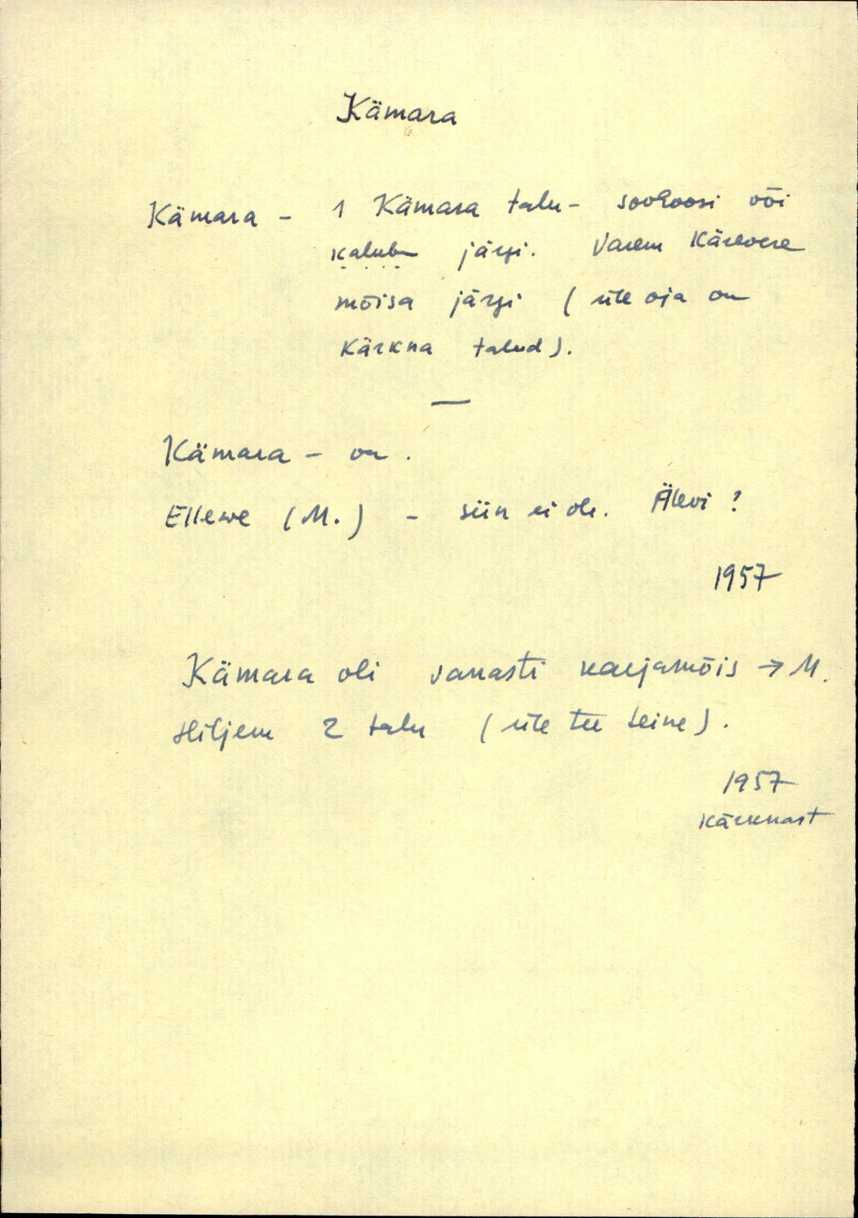 Kämara
Kämara - 1 Kämara talu - sovhoosi või
järgi. Varem Kärevere
mõisa järgi (üle oja on
Kärkna talud).
—
Kämara - on.
Ellewe (M.) - siin ei ole. Älevi?
1957
Kämara oli vanasti karjamõis → M.
Hiljem 2 talu (üle tee teine).
1957
Kärknast